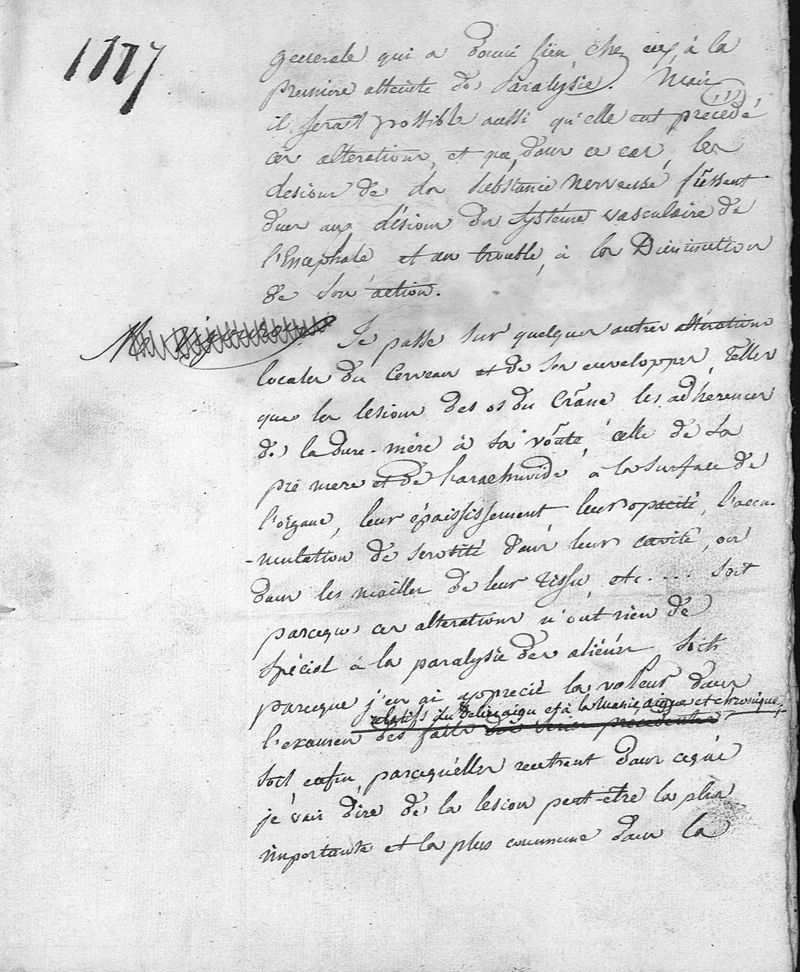 1117
generale qui a donné lien chez eux à la
premiere atteinte de Paralysie. Mais
il serait possible aussi qu'elle eut précédé
ces alterations, et que, dans ce cas, les
lésions de la substance nerveuse fussent
dues aux lésions du système vasculaire de
l'Encephale et au trouble, à la Diminution
de son action.
Je passe sur quelques autres altérations
locales du Cerveau et de ses enveloppes, telles
que les lesions des os du Crâne les adhérences
de la dure-mère à sa voûte, celle de la
pie mere et de l'arachnoide à la surface de
l'organe, leur épaississement leur opacité, l'accu-
-mulation de serosité dans leur cavité, ou
dans les mailles de leur tissu, etc.... soit
parceque ces alterations n'ont rien de
spécial à la paralysie des aliénés soit
parceque j'en ai apprecié la valeur dans
relatifs au delire aigu et à la manie aigue et chronique,
l'examen des faits
soit enfin, parcequ'elles rentrent dans ceque
je vais dire de la lesion peut-être la plus
importante et la plus commune dans la